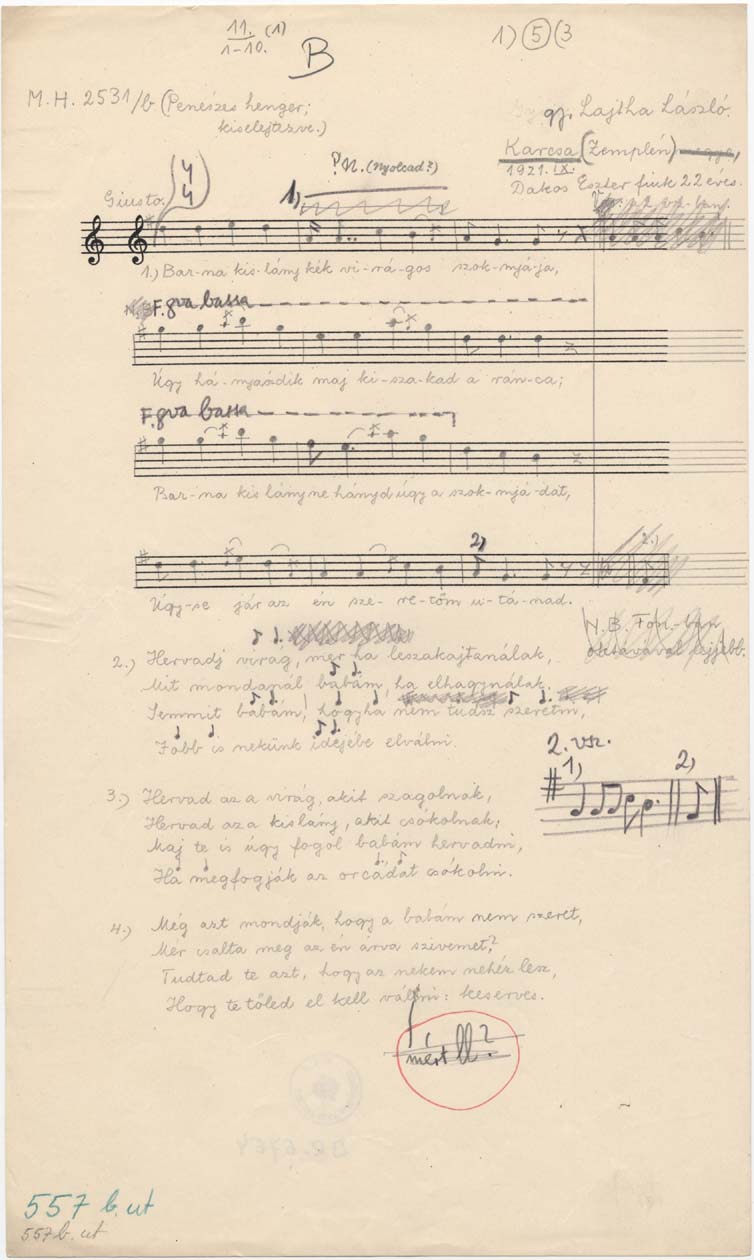 11. (1)
1-10.
B
1) 5 (3
M.H. 2531/b (Penészes henger;
kiselejtezve.)
gy. Lajtha László.
Karcsa (Zemplén)
1921. IX.
Dakos Eszter fiuk 22 éves.
Giusto. 4
4
1,
(Nyolcad?)
1.) Bar-na kis-lány kék vi-rá-gos szok-njá-ja,
F. 8va bassa
Úgy há-nyaódik maj ki-sza-kad a rán-ca;
F. 8va bassa
Bar-na kis lány ne hányd úgy a szok-njá-dat,
2,
Úgy-se jár az én sze-re-tőm u-tá-nad.
N.B. Fon-ban
oktávával lejjebb.
2.) Hervadj virág, mer ha leszakajtanálak,
Mit mondanál babám, ha elhagynálak,
Semmit babám, hogyha nem tudsz szeretni,
Jobb is nekünk idejébe elválni.
2. vsz.
1) 2)
3.) Hervad az a virág, akit szagolnak,
Hervad az a kislány, akit csókolnak;
Maj te is úgy fogol babám hervadni,
Ha megfogják az orcádat csókolni.
4.) Még azt mondják, hogy a babám nem szeret,
Mér csalta meg az én árva szivemet?
Tudtad te azt, hogy az nekem nehéz lesz,
Hogy te tőled el kell válni: keserves.
mért ll?
557 b. ut
557 b. ut